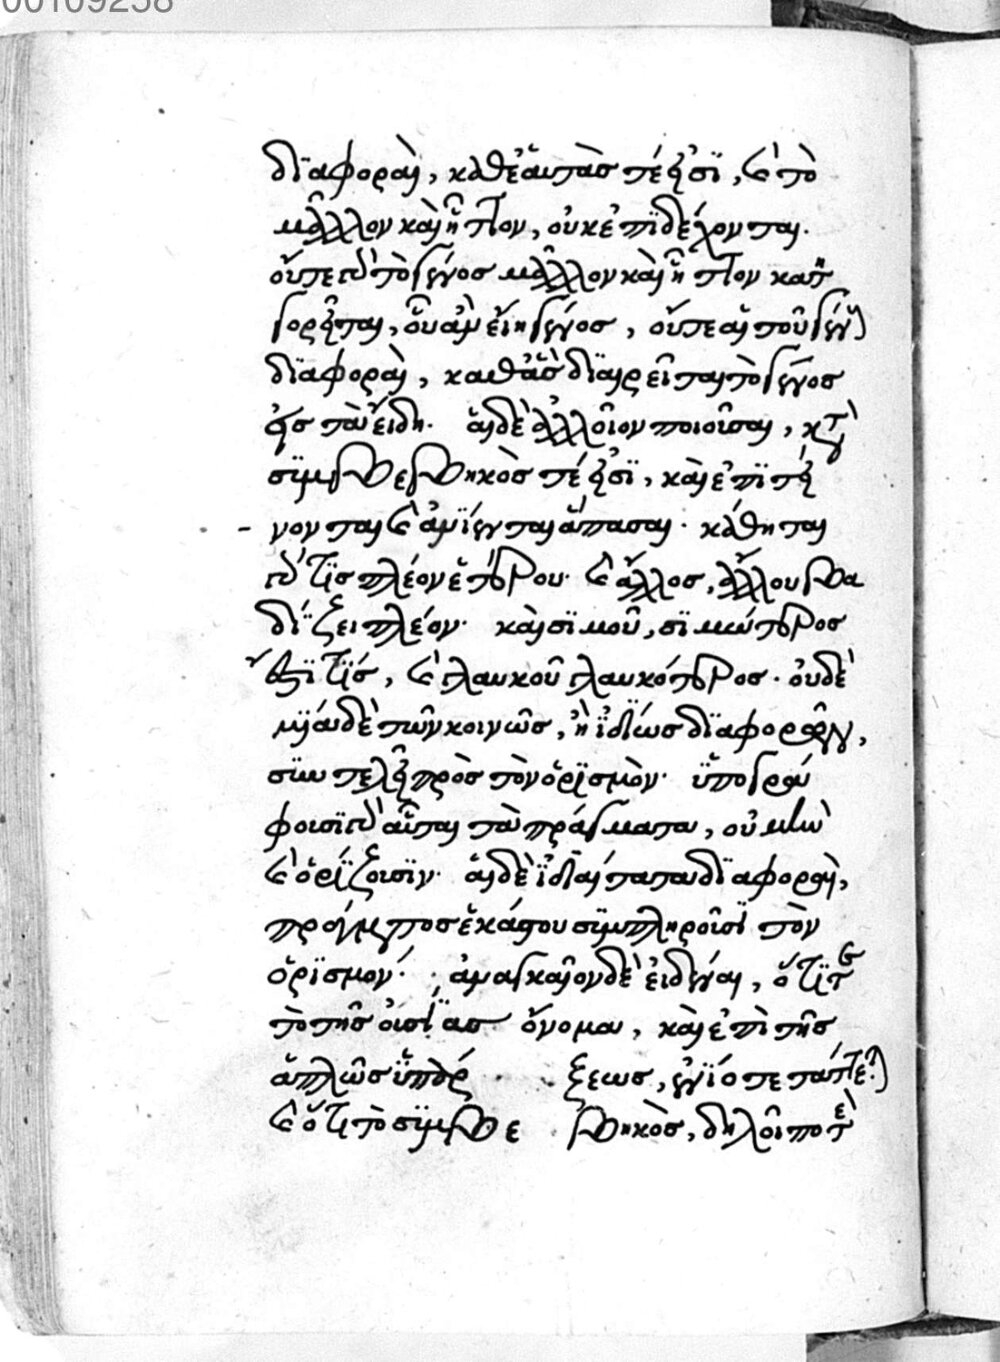 00109258
διαφοραὶ, καθεαυτὰς τέ εἰσι, καὶ τὸ
μᾶλλον καὶ ἧττον, οὐκ ἐπιδέχονται.
οὔτε γὰρ τὸ γένος μᾶλλον καὶ ἧττον κατη
γορεῖται, οὗ ἂν εἴη γένος, οὔτε αἱ τοῦ γένους
διαφοραὶ, καθ' ἃς διαιρεῖται τὸ γένος
εἰς τὰ εἴδη. αἱ δὲ ἀλλοῖον ποιοῦσαι, κατὰ
συμβεβηκὸς τέ εἰσι, καὶ ἐπιτεί
νονται καὶ ἀνίενται ἅπασαι. κάθηται
γάρ τις πλέον ἑτέρου. καὶ ἄλλος, ἄλλου βα
δίζει πλέον. καὶ σιμοῦ, σιμώτερος
ἐστί τις, καὶ γλαυκοῦ γλαυκότερος. οὐδε
μία δὲ τῶν κοινῶς, ἢ ἰδίως διαφορῶν,
συντελεῖ πρὸς τὸν ὁρισμὸν. ὑπογρά
φουσι γὰρ αὗται τὰ πράγματα, οὐ μὴν
καὶ ὁρίζουσιν. αἱ δὲ ἰδιαίταται διαφοραὶ,
πράγματος ἑκάστου συμπληροῦσι τὸν
ὁρισμον. ἀναγκαῖον δὲ εἰδέναι, ὅτι
τὸ τῆς οὐσίας ὄνομα, καὶ ἐπὶ τῆς
ἁπλῶς ὑπάρ ξεως, ἐνίοτε τάττεται
καὶ ὅτι τὸ συμβε βηκὸς, δηλοῖ ποτὲ